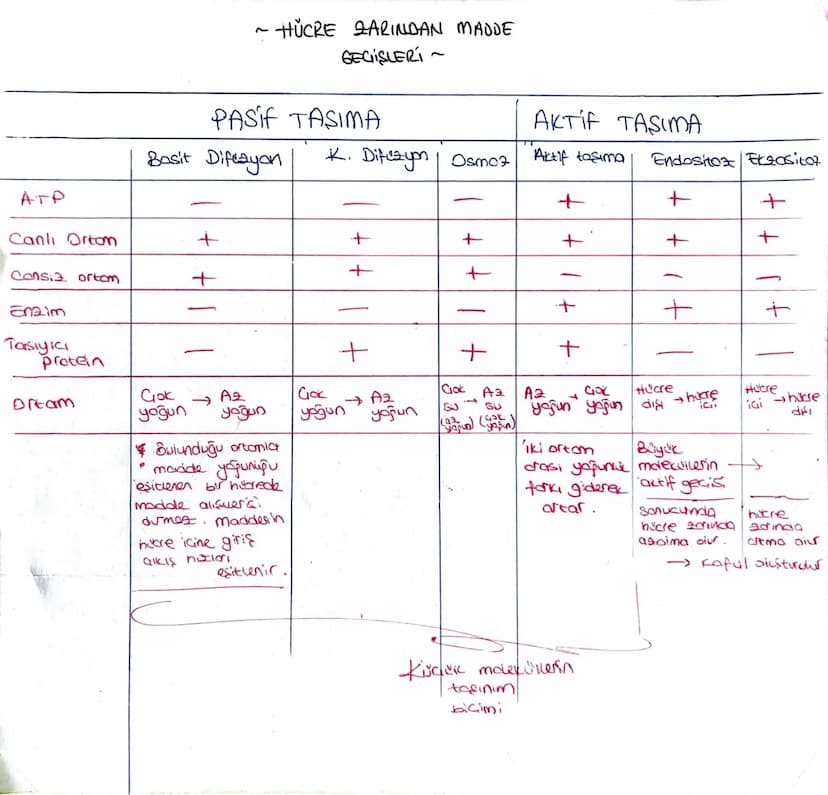 ~ HÜCRE ZARINDAN MADDE
GEÇİŞLERİ ~
PASİF TAŞIMA
AKTİF TAŞIMA
Basit Difüzyon
K. Difüzyon
Osmoz
Aktif taşıma
Endositoz
Ekzositoz
ATP — — — + + +
Canlı Ortam + + + + + +
Cansız ortam + + + — — —
Enzim — — — + + +
Taşıyıcı
protein — + + + — —
Ortam
Çok yoğun → Az yoğun
Çok yoğun → Az yoğun
Çok su (az yoğun) → Az su (çok yoğun)
Az yoğun → Çok yoğun
Hücre dışı → hücre içi
Hücre içi → hücre dışı
* Bulunduğu ortamla
* madde yoğunluğu
eşitlenen bir hücrede
madde alışverişi
durmaz. maddesin
hücre içine giriş
çıkış hızları
eşitlenir.
iki ortam
arası yoğunluk
farkı giderek
artar.
Büyük
moleküllerin →
aktif geçişi
sonucunda
hücre zarında
azalma olur.
hücre
zarında
artma olur
→ Koful oluşturulur
Küçük moleküllerin
taşınım
biçimi